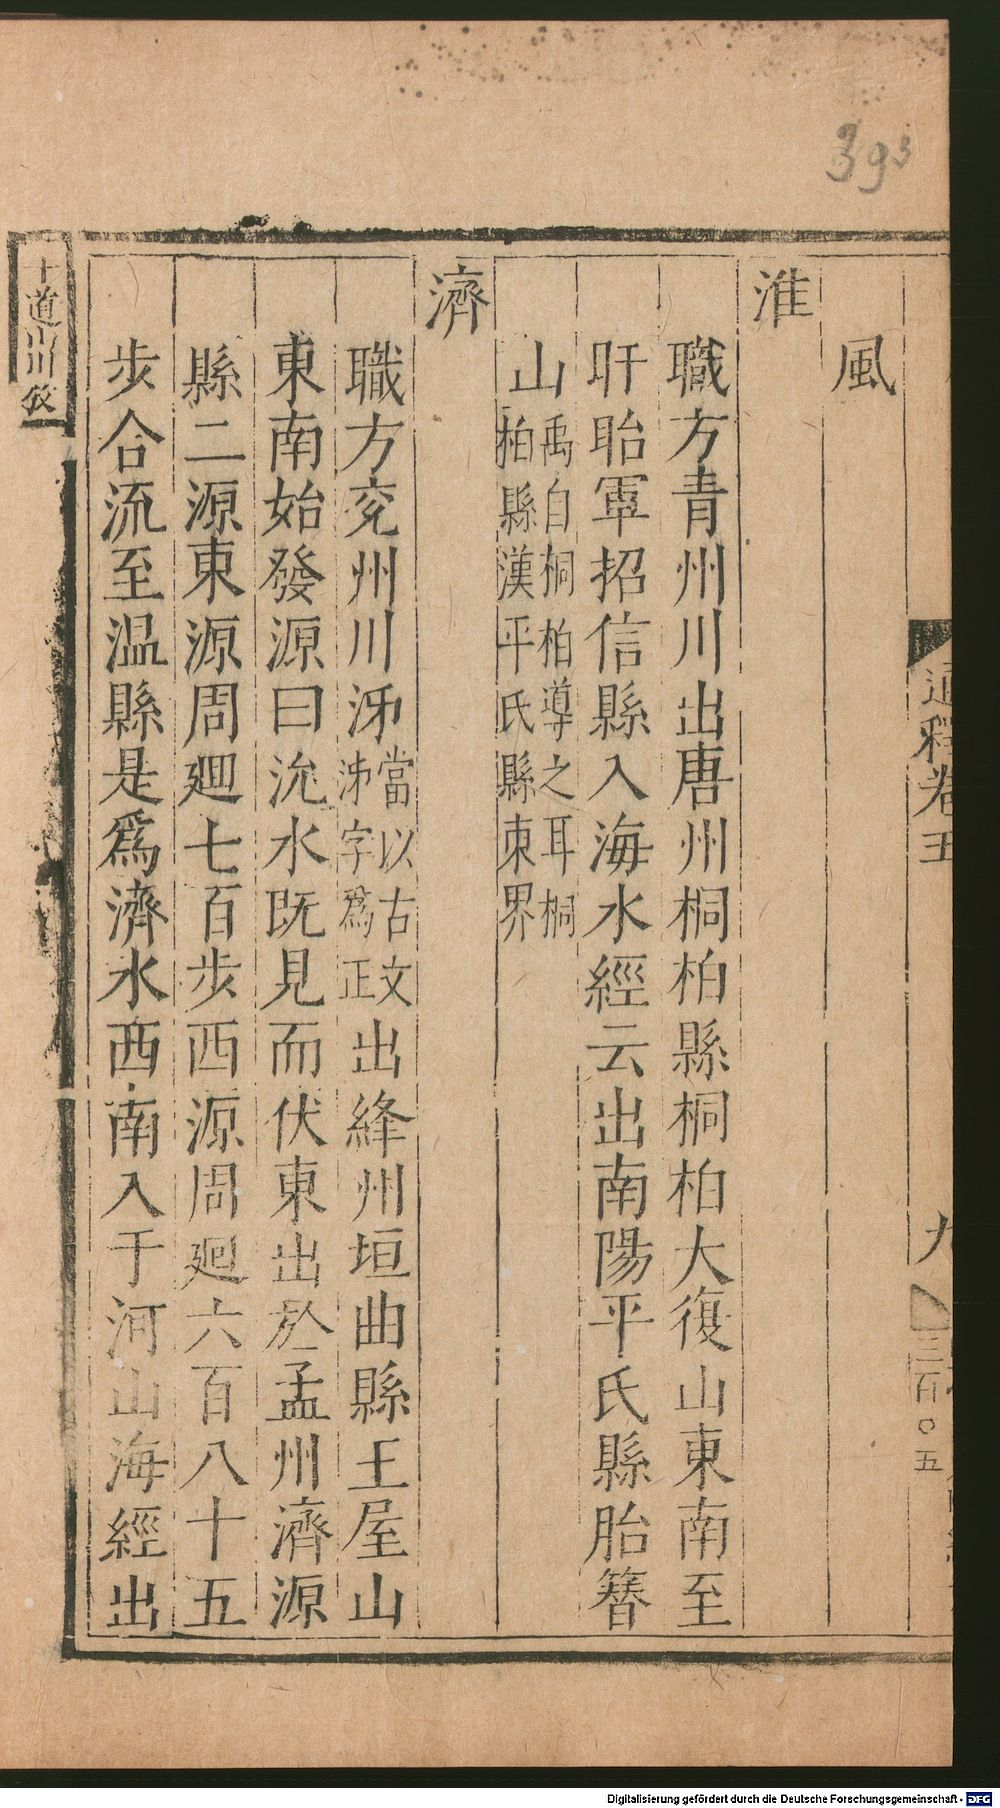 393
風
淮
職方青州川出唐州桐柏縣桐柏大復山東南至
盱眙軍招信縣入海水經云出南陽平氏縣胎簪
山禹自桐柏導之耳桐
柏縣漢平氏縣東界
濟
職方兗州川泲當以古文
泲字爲正出絳州垣曲縣王屋山
東南始發源曰沇水既見而伏東出於孟州濟源
縣二源東源周廻七百步西源周廻六百八十五
步合流至温縣是爲濟水西南入于河山海經出
十道山川攷
通釋卷五
九
三百〇五
Digitalisierung gefördert durch die Deutsche Forschungsgemeinschaft - DFG